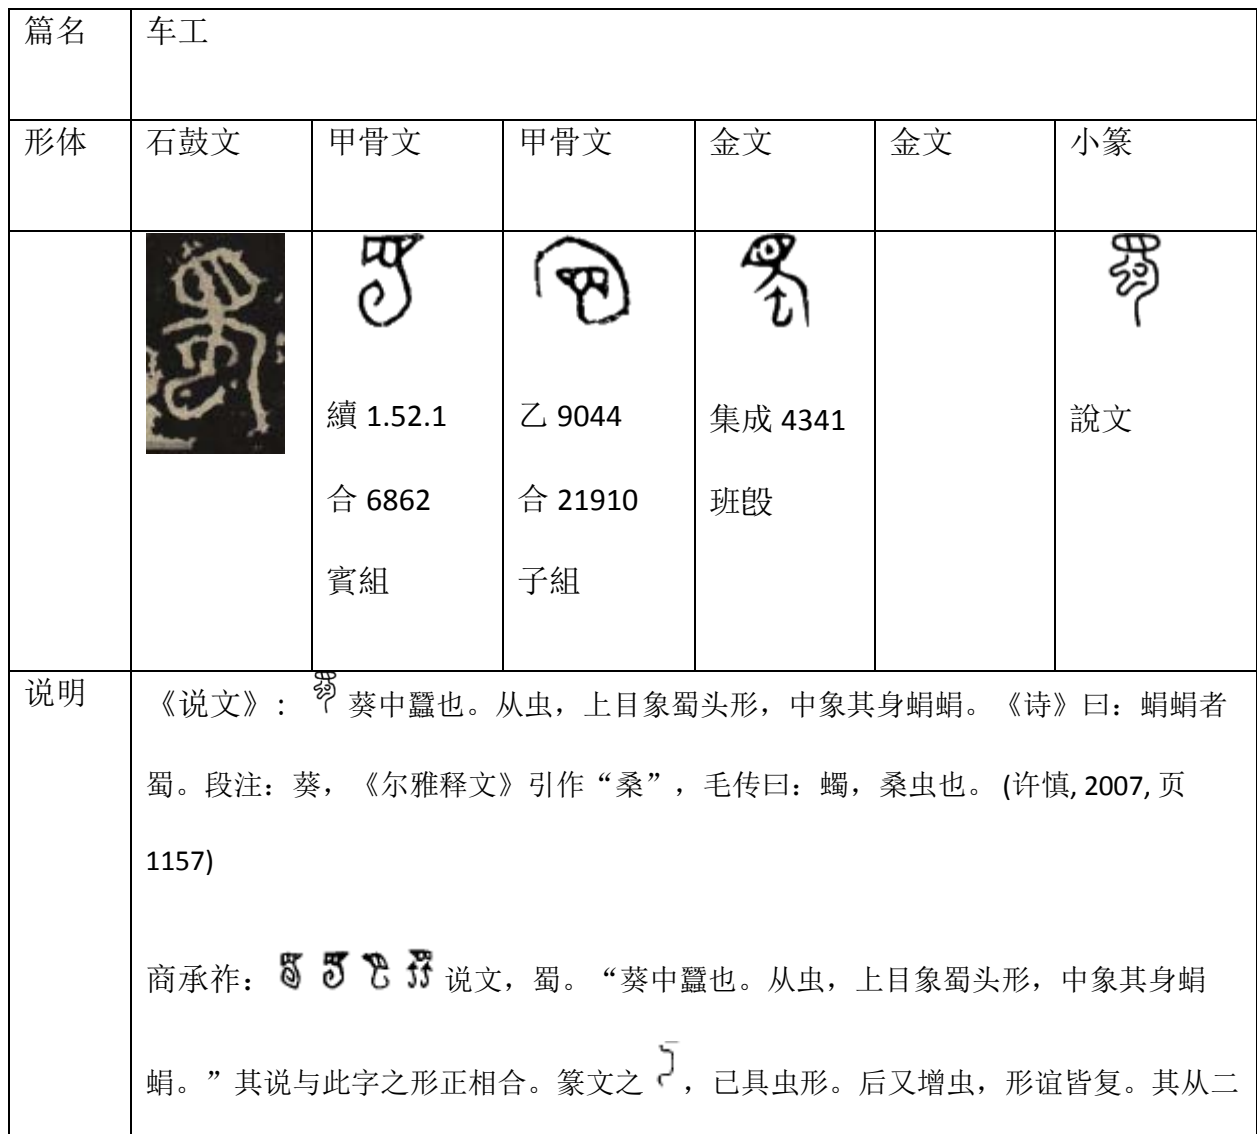 篇名 车工
形体 石鼓文 甲骨文 甲骨文 金文 金文 小篆
續 1.52.1 乙 9044 集成 4341 說文
合 6862 合 21910 班𣪘
賓組 子組
说明 《说文》: 葵中蠶也。从虫，上目象蜀头形，中象其身蜎蜎。《诗》曰：蜎蜎者
蜀。段注：葵，《尔雅释文》引作“桑”，毛传曰：蠋，桑虫也。(许慎, 2007, 页
1157)
商承祚： 说文，蜀。“葵中蠶也。从虫，上目象蜀头形，中象其身蜎
蜎。”其说与此字之形正相合。篆文之 ，已具虫形。后又增虫，形谊皆复。其从二